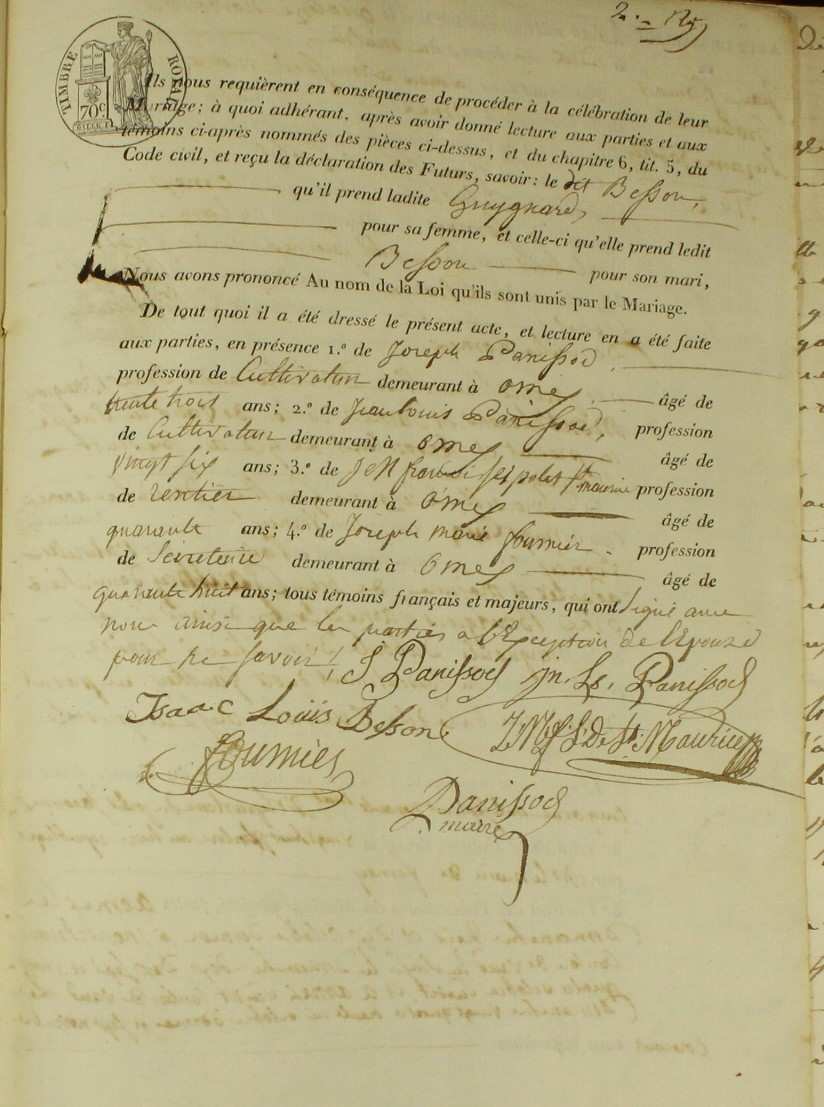 TIMBRE ROYAL
70c
Ils nous requièrent en conséquence de procéder à la célébration de leur
Mariage; à quoi adhérant, après avoir donné lecture aux parties et aux
témoins ci-après nommés des pièces ci-dessus, et du chapitre 6, tit. 5, du
Code civil, et reçu la déclaration des Futurs, savoir: le dit Besson,
qu'il prend ladite Guygnard,
pour sa femme, et celle-ci qu'elle prend ledit
Besson pour son mari,
Nous avons prononcé Au nom de la Loi qu'ils sont unis par le Mariage.
De tout quoi il a été dressé le présent acte, et lecture en a été faite
aux parties, en présence 1.º de Joseph Panissod
profession de Cultivateur demeurant à ornex âgé de
trente trois ans; 2.º de Jean Louis Panissod, profession
de Cultivateur demeurant à ornex âgé de
vingt six ans; 3.º de profession
de rentier demeurant à ornex âgé de
quarante ans; 4.º de Joseph Marie fournier profession
de Secretaire demeurant à ornex âgé de
quarante huit ans; tous témoins français et majeurs, qui ont signé avec
nous ainsi que les parties à l'Exception de l'Epouse
pour ne savoir
J. Panissod jn. Ls. Panissod
Isaac Louis Besson De St. Maurice
Fournier
Panissod
maire